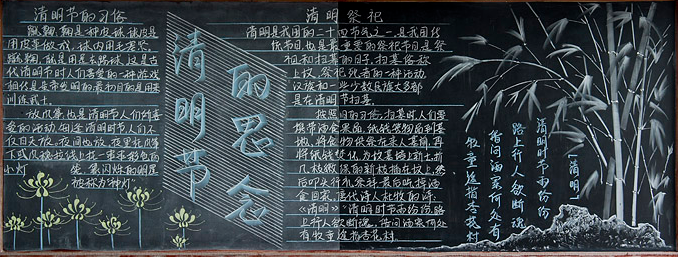 清明节的习俗
蹴鞠,鞠是一种皮球,球皮是
用皮革做成,球内用毛塞紧。
蹴鞠,就是用足去踢球。这是古
代清明节时人们喜爱的一种游戏
相传是黄帝发明的最初目的是用来
训练武士。
放风筝,也是清明节人们所喜
爱的活动。每逢清明时节,人们不
仅白天放,夜间也放。夜里在风筝
下或风稳拉线上挂一串串彩色的
小灯
笼,象闪烁的明星
被称为神灯。
清明节
的思念
清明祭祀
清明是我国的二十四节气之一,是我国传
统节日,也是最重要的祭祀节日,是祭
祖和扫墓的日子。扫墓俗称
上坟,祭祀死者的一种活动。
汉族和一些少数民族大多都
是在清明节扫墓。
按照旧的习俗,扫墓时,人们要
携带酒食果品,纸钱等物品到墓
地,将食物供祭在亲人墓前,再
将纸钱焚化,为坟墓培上新土,折
几枝嫩绿的新枝插在坟上,然
后叩头行礼祭拜,最后吃掉酒
食回家。唐代诗人杜牧的诗
《清明》:“清明时节雨纷纷,路
上行人欲断魂。借问酒家何处
有,牧童遥指杏花村。
[清明]
清明时节雨纷纷
路上行人欲断魂
借问酒家何处有
牧童遥指杏花村